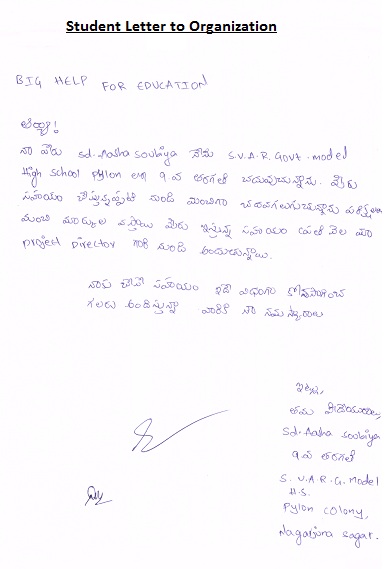 Student Letter to Organization
BIG HELP FOR EDUCATION
అయ్యా!
నా పేరు sd. Aasha soubiya నేను S.V.A.R. Govt. model
High school pylon లో 9 వ తరగతి చదువుచున్నాను. మీరు
సహాయం చేస్తున్నప్పటి నుండి మంచిగా చదవగలుగుచున్నాను పరీక్షలలో
మంచి మార్కులు వస్తాయి మీరు ఇస్తున్న సహాయం ప్రతి నెల మా
project Director గారి నుండి అందుతున్నాయి.
నాకు చేసే సహాయం ఇదే విధంగా కొనసాగించ
గలరు వారికి నా నమస్కారాలు
ఇట్లు,
తమ విధేయురాలు,
Sd. Aasha soubiya
9 వ తరగతి
S. V. A. R. G. Model
H.S.
Pylon colony,
Nagarjuna sagar.